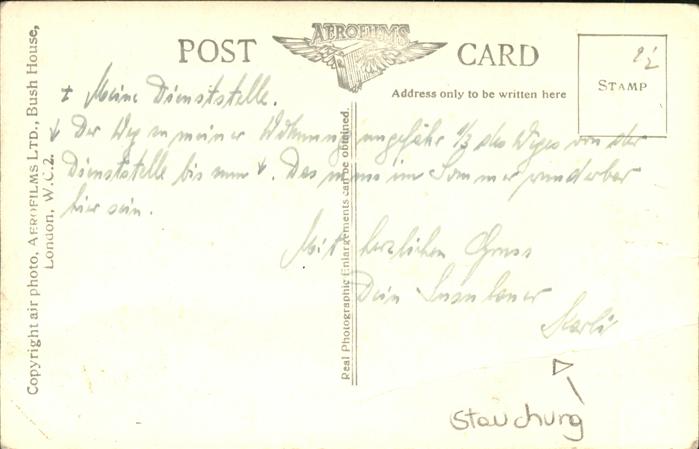 POST AEROFILMS CARD
Address only to be written here
STAMP
Copyright air photo, AEROFILMS LTD., Bush House,
London, W.C.2.
Real Photographic Enlargements can be obtained.
+ Meine Dienststelle.
↓ Der Weg zu meiner Wohnung ungefähr 1/3 des Weges von der
Dienststelle bis zum ↓. Das muss im Sommer wunderbar
hier sein.
Mit herzlichem Gruss
Dein
Karli
Stauchung